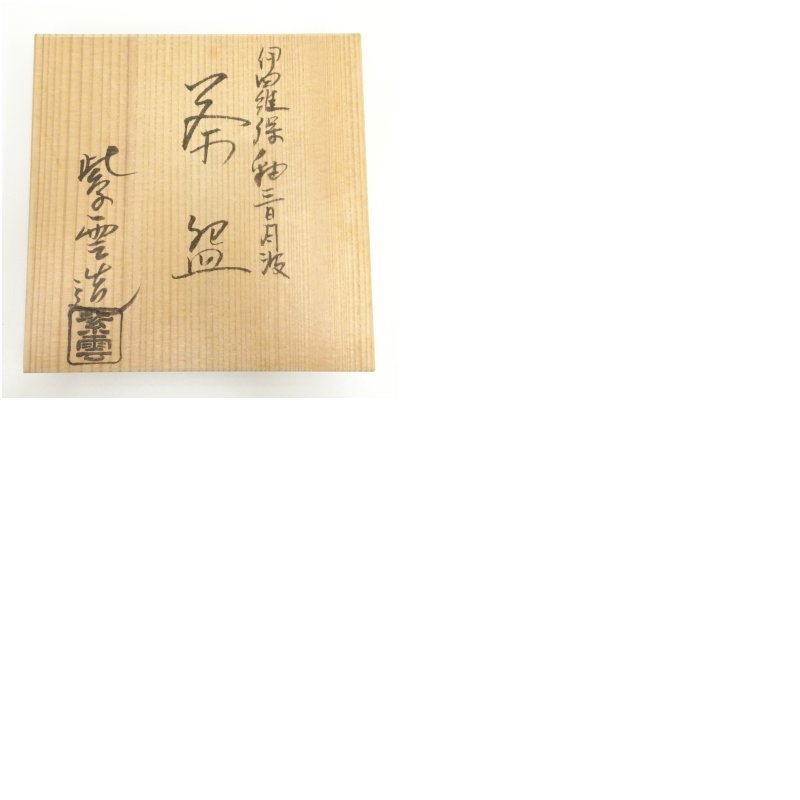 伊羅保釉三日月波
茶盌
紫雲造
紫雲